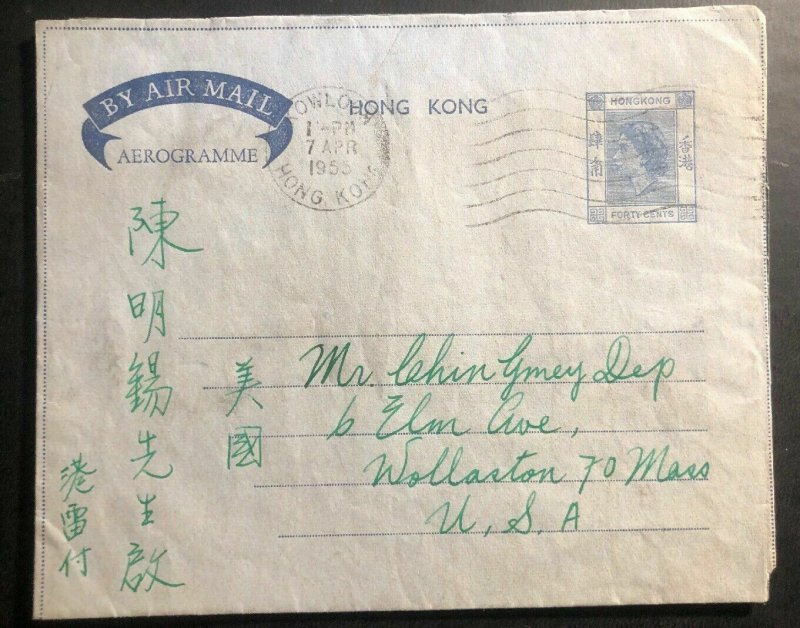 BY AIR MAIL
AEROGRAMME
HONG KONG
KOWLOON
PM
7 APR
1955
HONG KONG
HONGKONG
肆角
香港
FORTY CENTS
陳明錫先生啟
美國
港雷付
Mr. Chin Gmey Dep
6 Elm Ave,
Wollaston 70 Mass
U. S. A